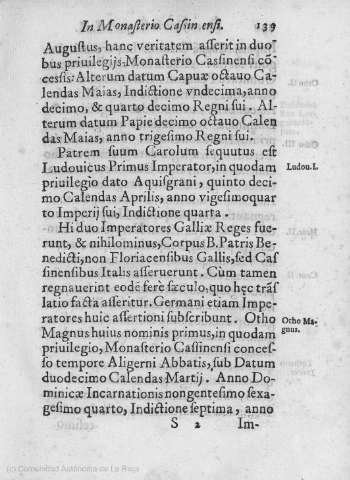 In Monasterio Cassin ensi. 139
Augustus, hanc veritatem asserit in duo
bus priuilegijs Monasterio Cassinensi cō
cessis: Alterum datum Capuæ octauo Ca-
lendas Maias, Indictione vndecima, anno
decimo, & quarto decimo Regni sui. Al-
terum datum Papie decimo octauo Calen
das Maias, anno trigesimo Regni sui.
Patrem suum Carolum sequutus est
Ludouicus Primus Imperator, in quodam
Ludou. I.
priuilegio dato Aquisgrani, quinto deci-
mo Calendas Aprilis, anno vigesimoquar
to Imperij sui, Indictione quarta.
Hi duo Imperatores Galliæ Reges fue-
runt, & nihilominus, Corpus B. Patris Be-
nedicti, non Floriacensibus Gallis, sed Cas
sinensibus Italis asseruerunt. Cùm tamen
regnauerint eodē ferè sæculo, quo hęc trās
latio facta asseritur. Germani etiam Impe-
ratores huic assertioni subscribunt. Otho
Otho Ma-
gnus.
Magnus huius nominis primus, in quodam
priuilegio, Monasterio Cassinensi conces-
so tempore Aligerni Abbatis, sub Datum
duodecimo Calendas Martij. Anno Do-
minicæ Incarnationis nongentesimo sexa-
gesimo quarto, Indictione septima, anno
S 2 Im-
(c) Comunidad Autónoma de La Rioja